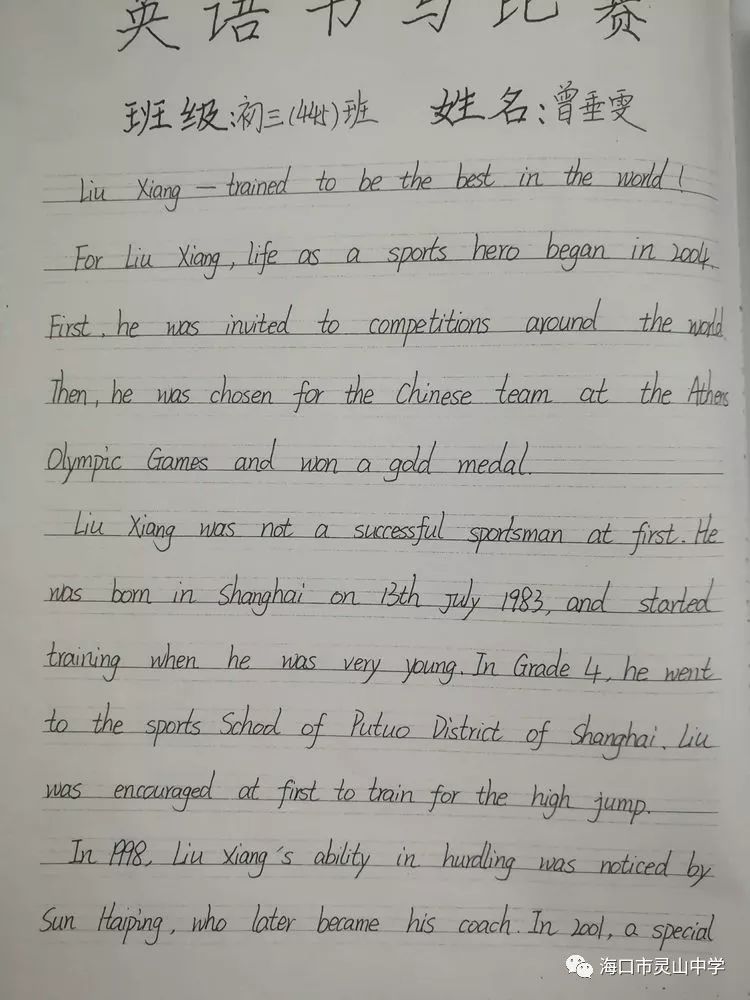 英语书写比赛
班级:初三(445)班 姓名:曾垂雯
Liu Xiang — trained to be the best in the world!
For Liu Xiang, life as a sports hero began in 2004.
First, he was invited to competitions around the world
Then, he was chosen for the Chinese team at the Athens
Olympic Games and won a gold medal.
Liu Xiang was not a successful sportsman at first. He
was born in Shanghai on 13th July 1983, and started
training when he was very young. In Grade 4, he went
to the sports School of Putuo District of Shanghai. Liu
was encouraged at first to train for the high jump.
In 1998, Liu Xiang's ability in hurdling was noticed by
Sun Haiping, who later became his coach. In 2001, a special
海口市灵山中学